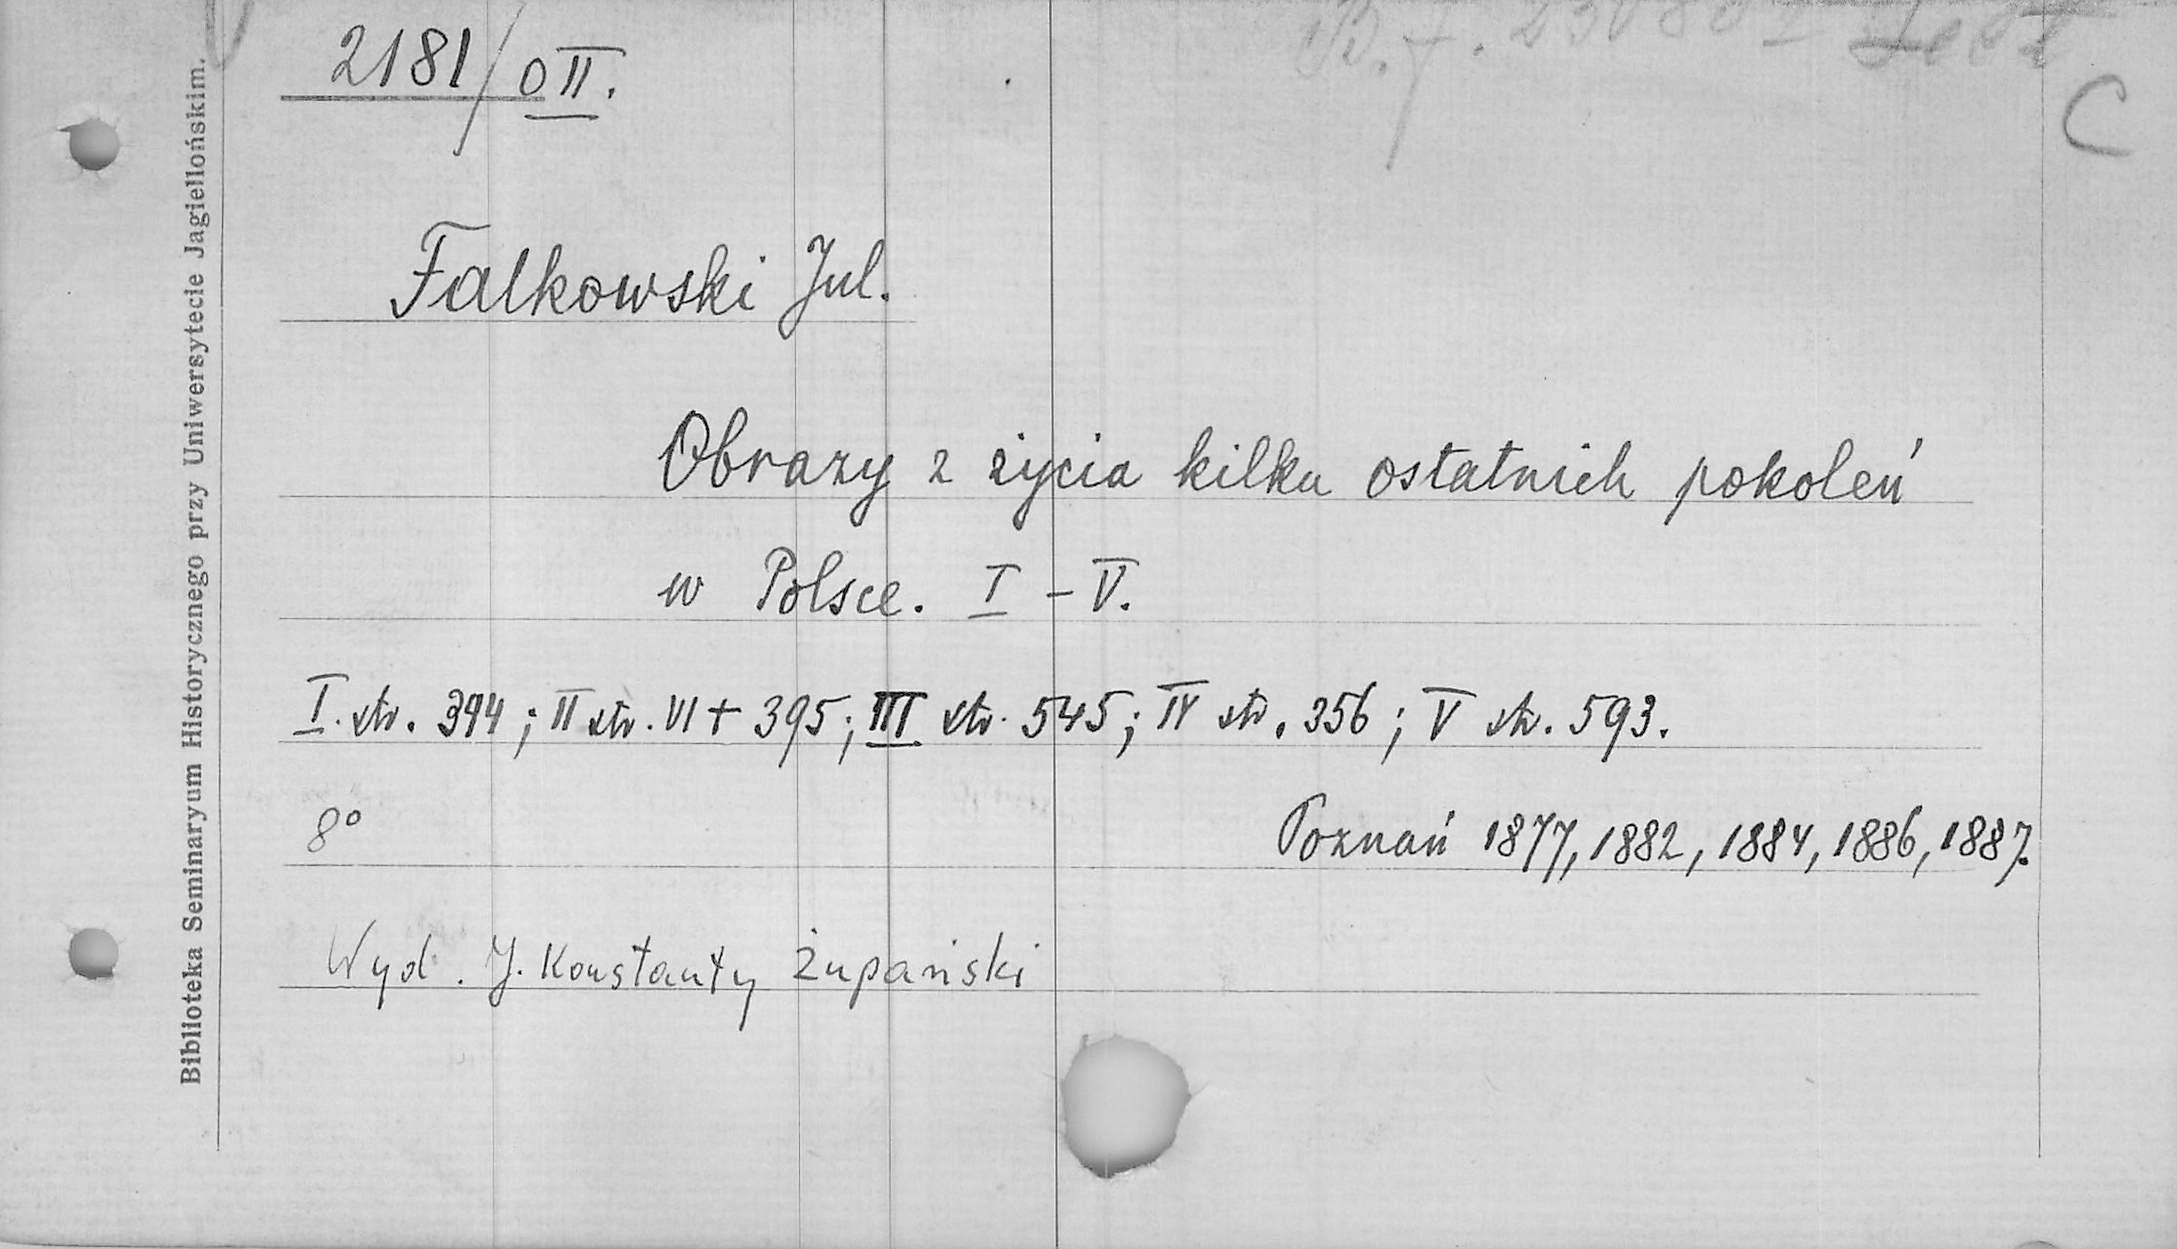 2181/O II.
C
Falkowski Jul.
Obrazy z życia kilku ostatnich pokoleń
w Polsce. I – V.
I. str. 394; II str. VI + 395; III str. 545; IV str. 356; V str. 593.
8°
Poznań 1877, 1882, 1884, 1886, 1887.
Wyd. J. Konstanty Żupański
Biblioteka Seminaryum Historycznego przy Uniwersytecie Jagiellońskim.